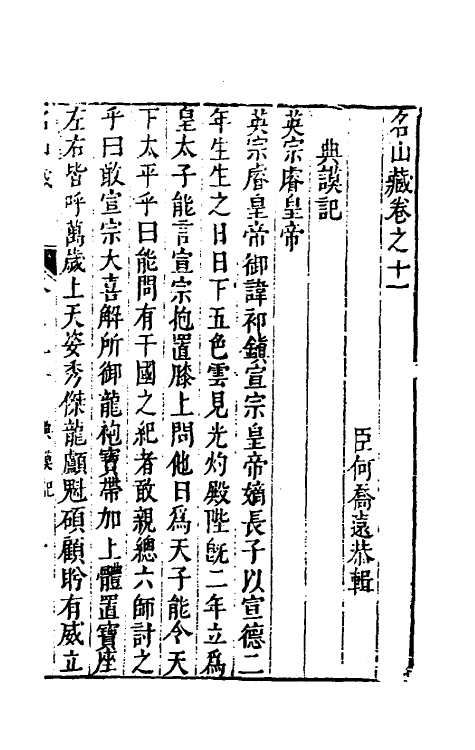 名山藏卷之十一
臣何喬遠恭輯
典謨記
英宗睿皇帝
英宗睿皇帝御諱祁鎮宣宗皇帝嫡長子以宣德二
年生生之日日下五色雲見光灼殿陛旣二年立爲
皇太子能言宣宗抱置膝上問他日爲天子能令天
下太平乎曰能問有干國之紀者敢親總六師討之
乎曰敢宣宗大喜解所御龍袍寶帶加上體置寶座
左右皆呼萬歲上天姿秀傑龍顱魁碩顧盻有威立
名山藏 典謨記